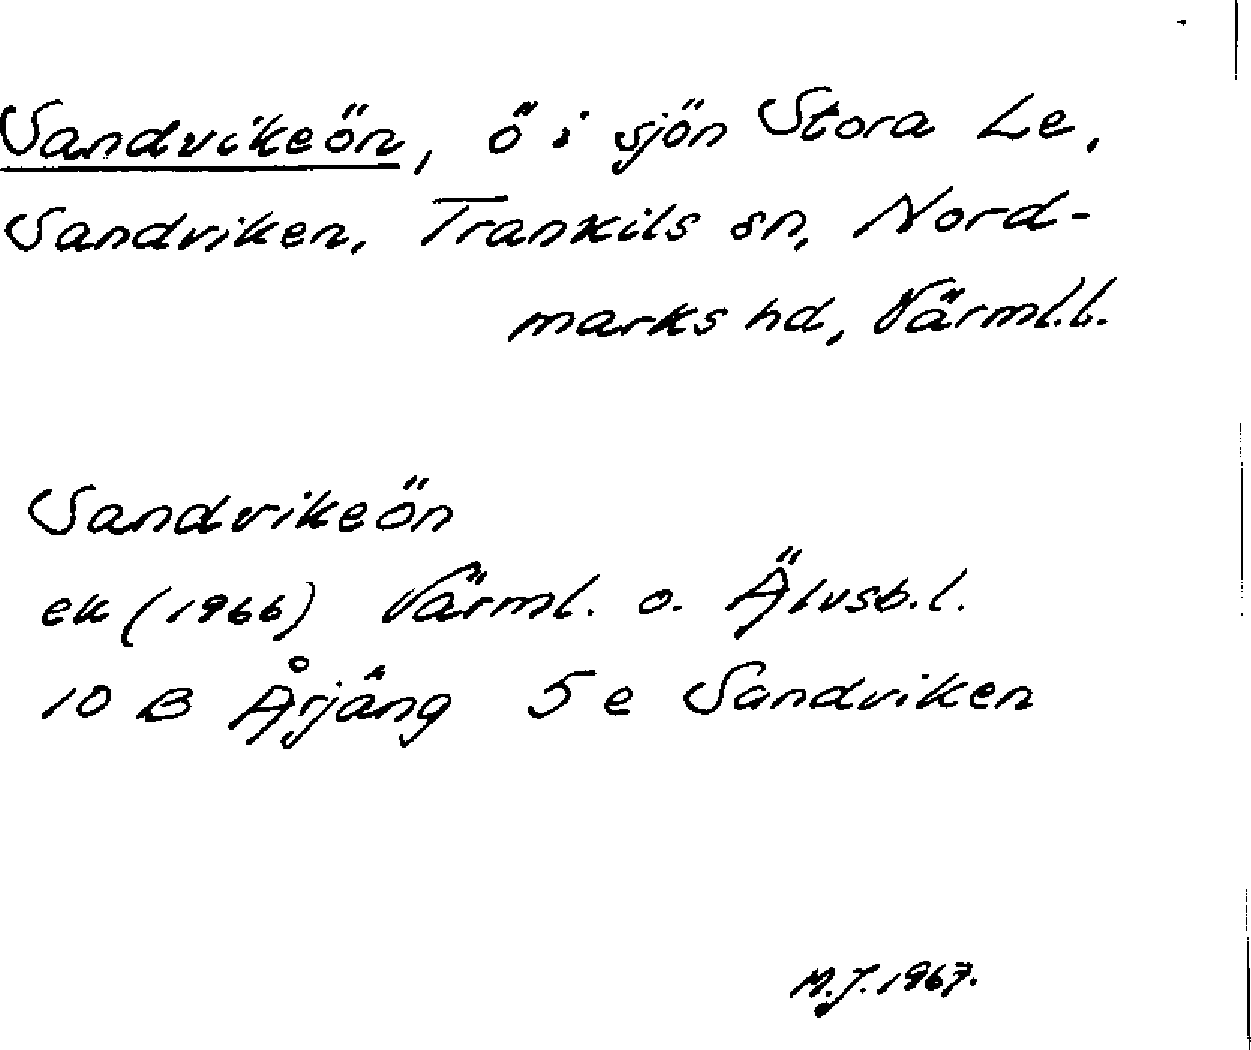 Sandvikeön, ö i sjön Stora Le,
Sandviken, Trankils sn, Nord-
marks hd, Värml.l.
Sandvikeön
ek (1966) Värml. o. Älvsb.l.
10 B Årjäng 5 e Sandviken
M.J. 1967.